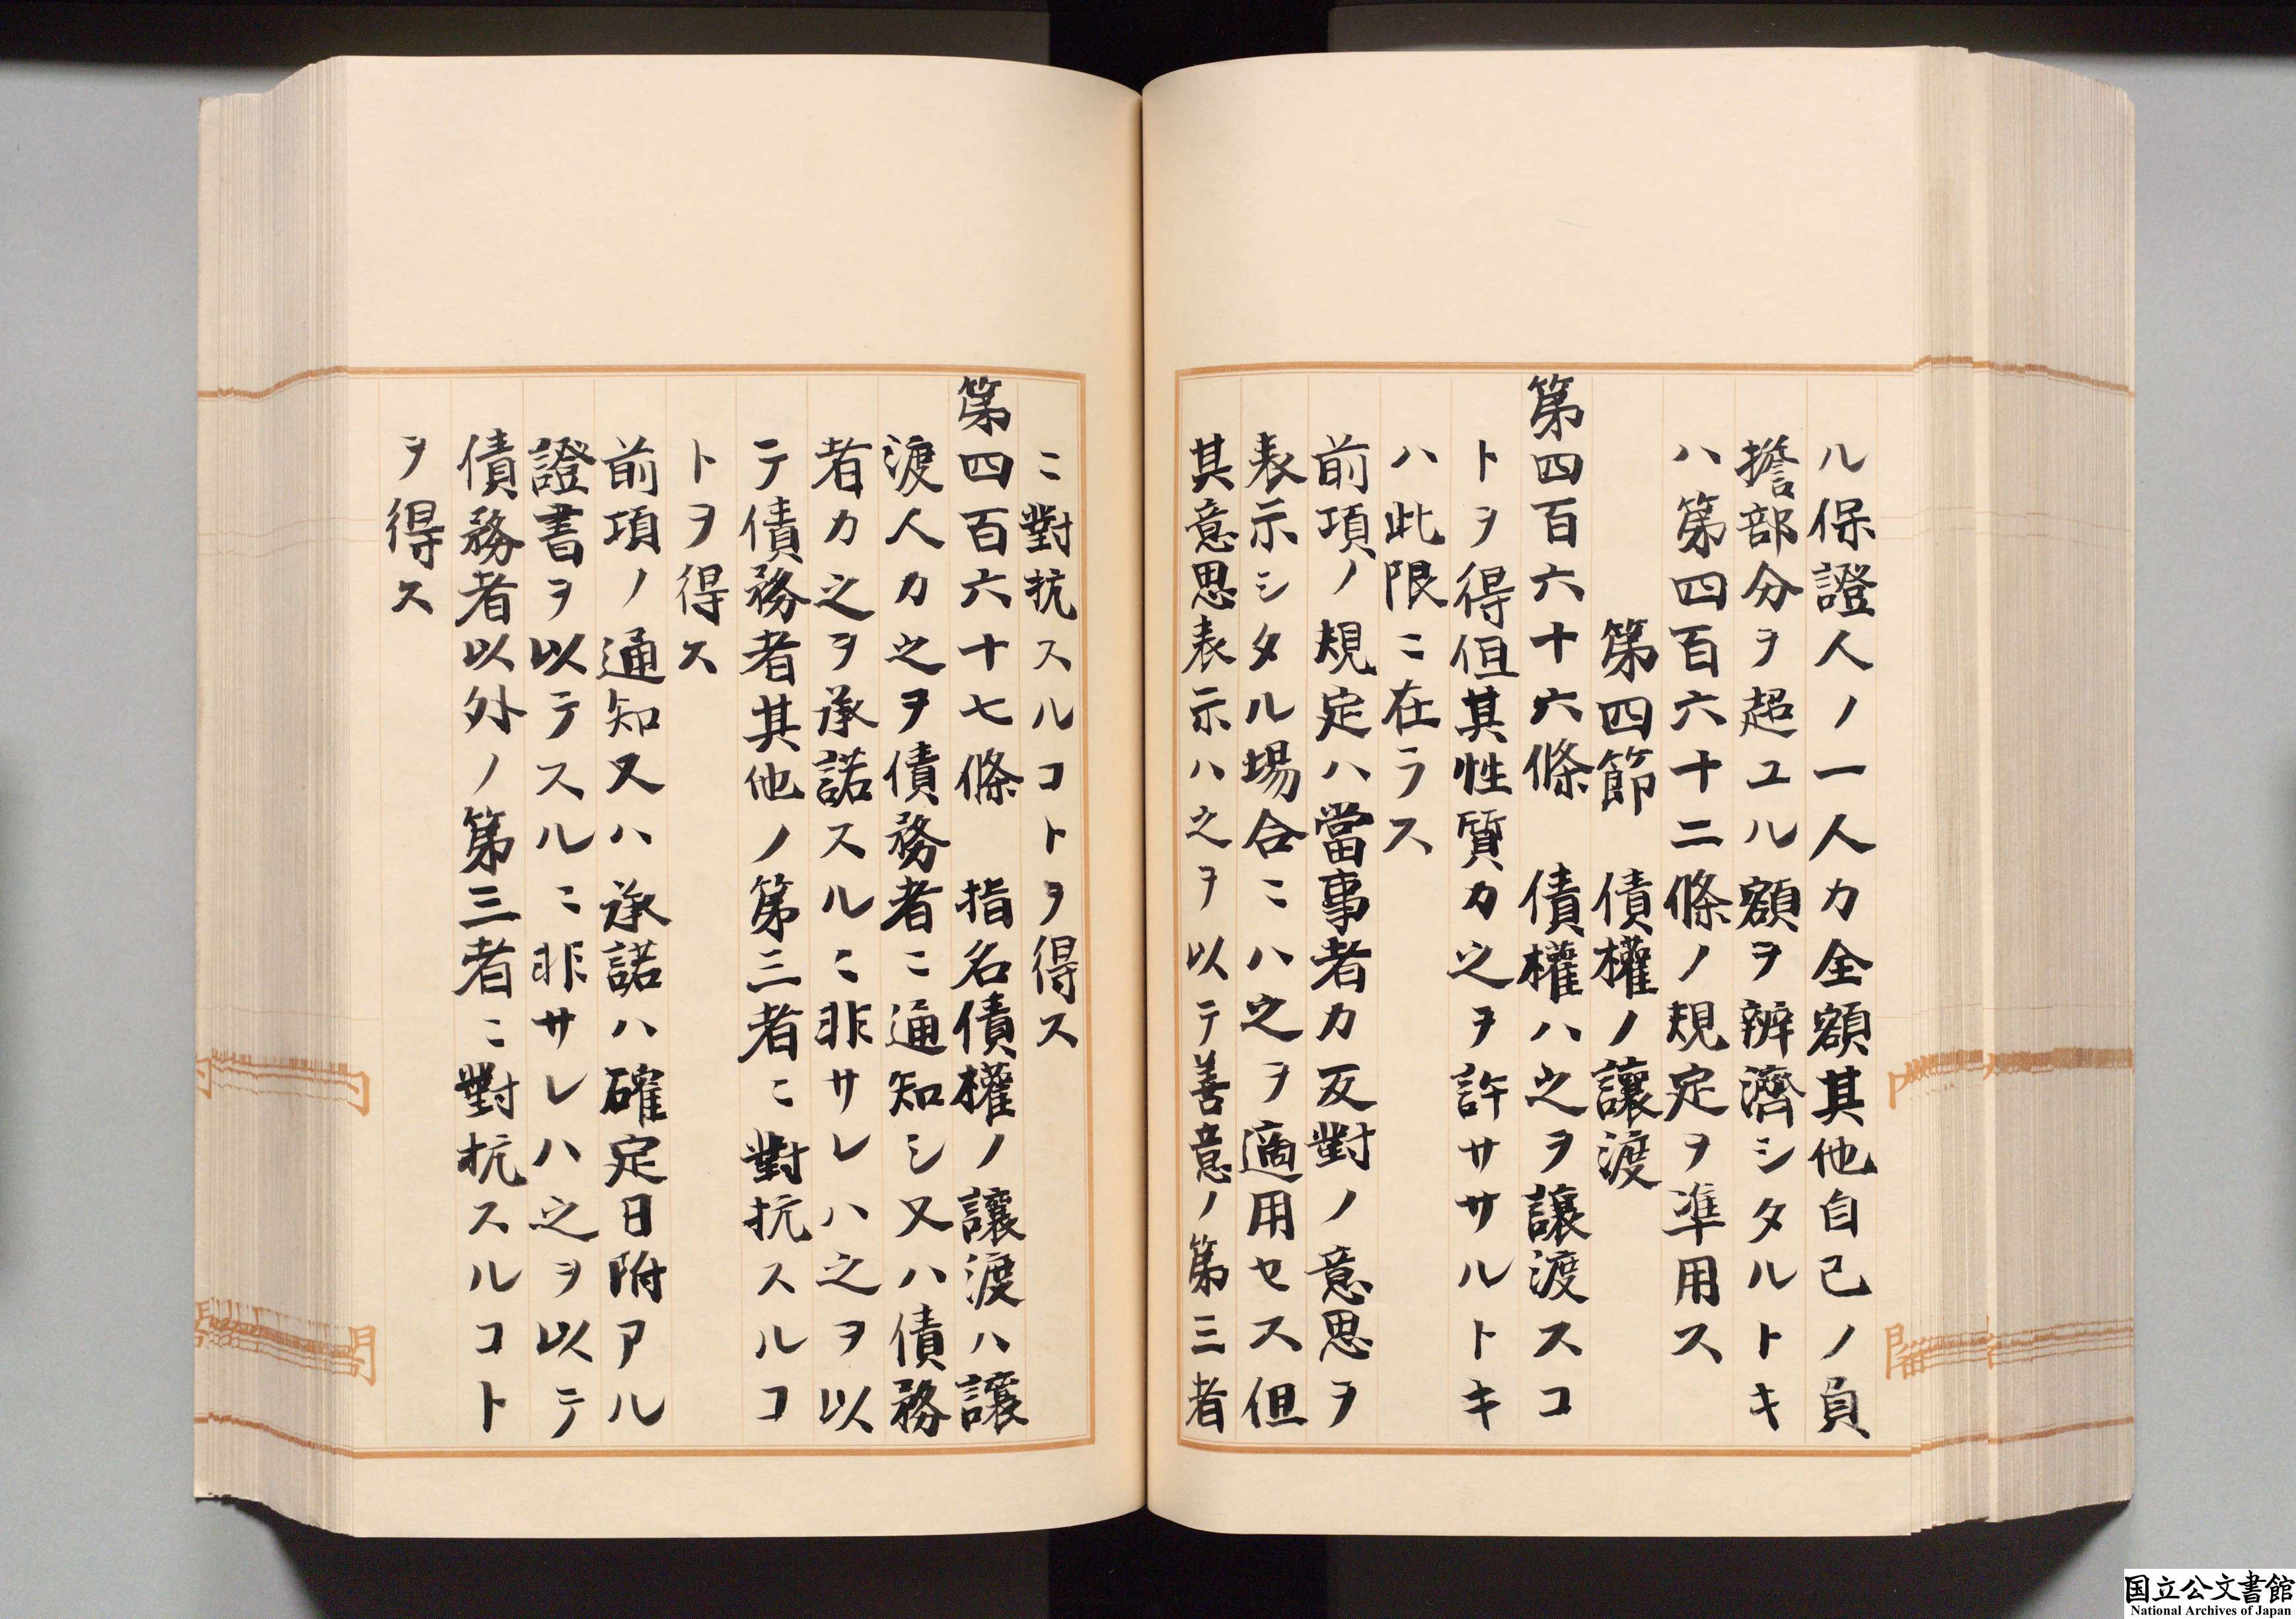 ル保證人ノ一人カ全額其他自己ノ負
擔部分ヲ超ユル額ヲ辨濟シタルトキ
ハ第四百六十二條ノ規定ヲ準用ス
第四節　債權ノ讓渡
第四百六十六條　債權ハ之ヲ讓渡スコ
トヲ得但其性質カ之ヲ許ササルトキ
ハ此限ニ在ラス
前項ノ規定ハ當事者カ反對ノ意思ヲ
表示シタル場合ニハ之ヲ適用セス但
其意思表示ハ之ヲ以テ善意ノ第三者
ニ對抗スルコトヲ得ス
第四百六十七條　指名債權ノ讓渡ハ讓
渡人カ之ヲ債務者ニ通知シ又ハ債務
者カ之ヲ承諾スルニ非サレハ之ヲ以
テ債務者其他ノ第三者ニ對抗スルコ
トヲ得ス
前項ノ通知又ハ承諾ハ確定日附アル
證書ヲ以テスルニ非サレハ之ヲ以テ
債務者以外ノ第三者ニ對抗スルコト
ヲ得ス
国立公文書館
National Archives of Japan